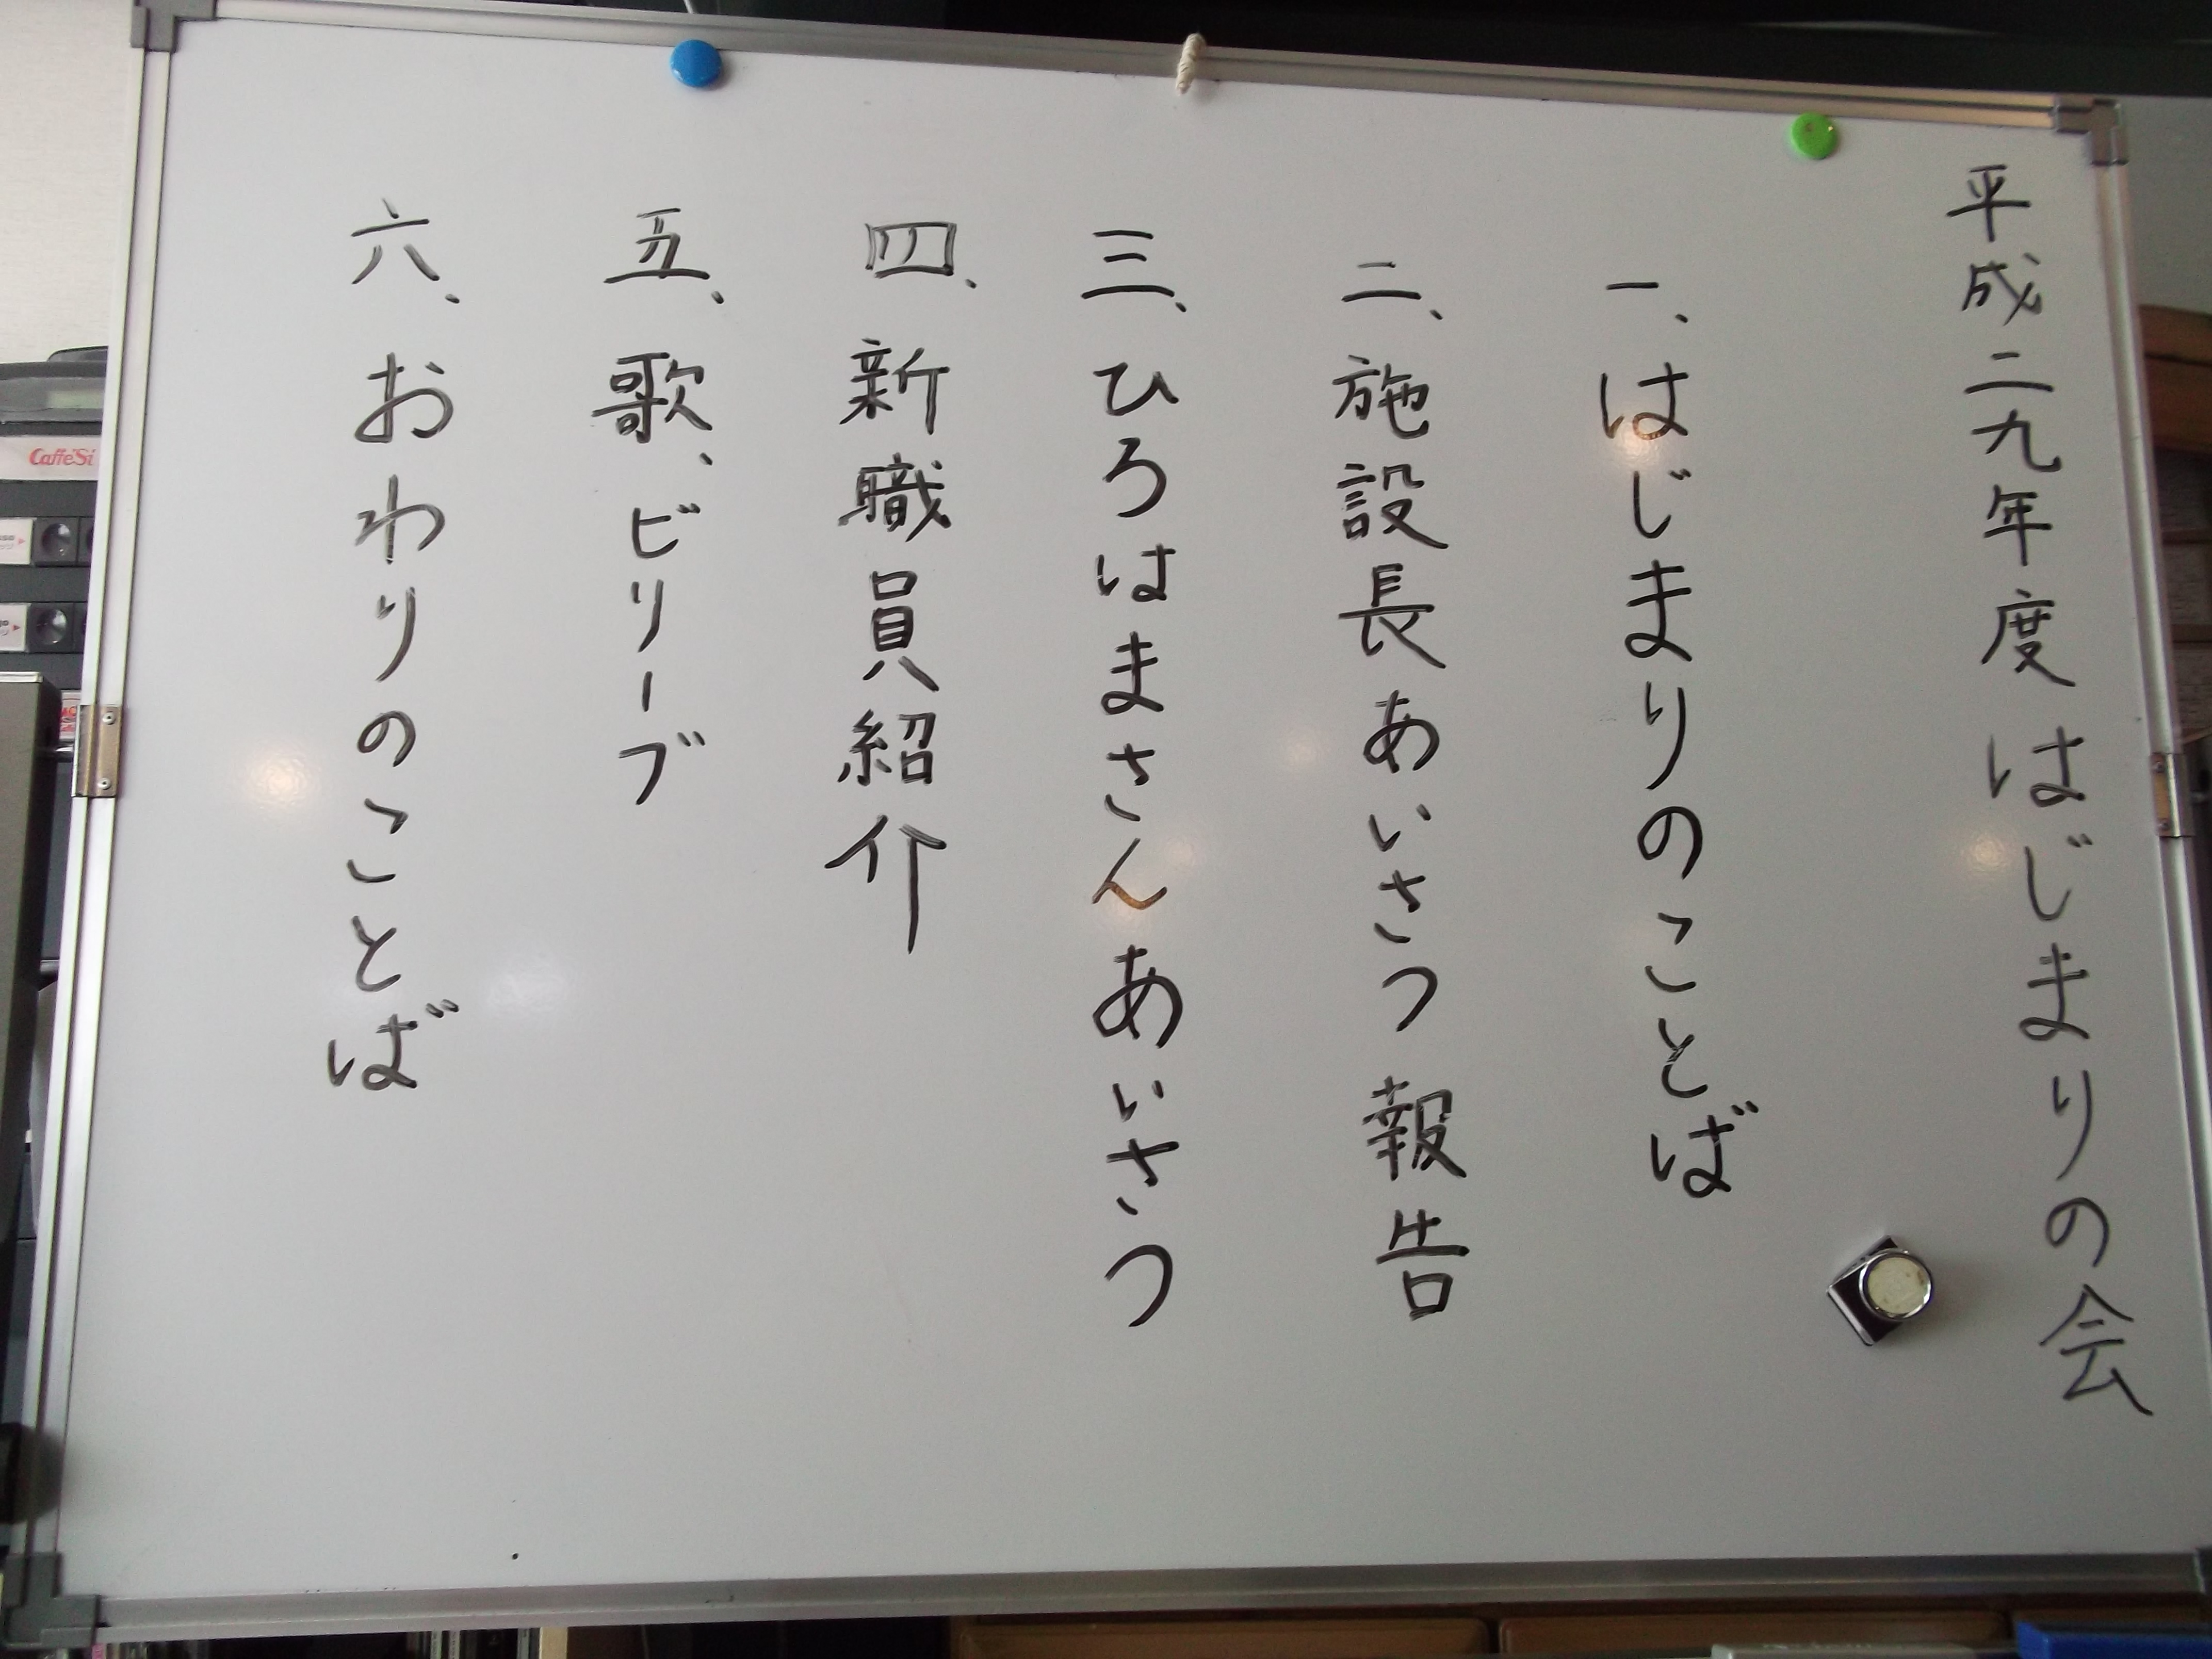 平成二九年度 はじまりの会
一、はじまりのことば
二、施設長あいさつ 報告
三、ひろはまさん あいさつ
四、新職員紹介
五、歌、ビリーブ
六、おわりのことば
Caffe'Si